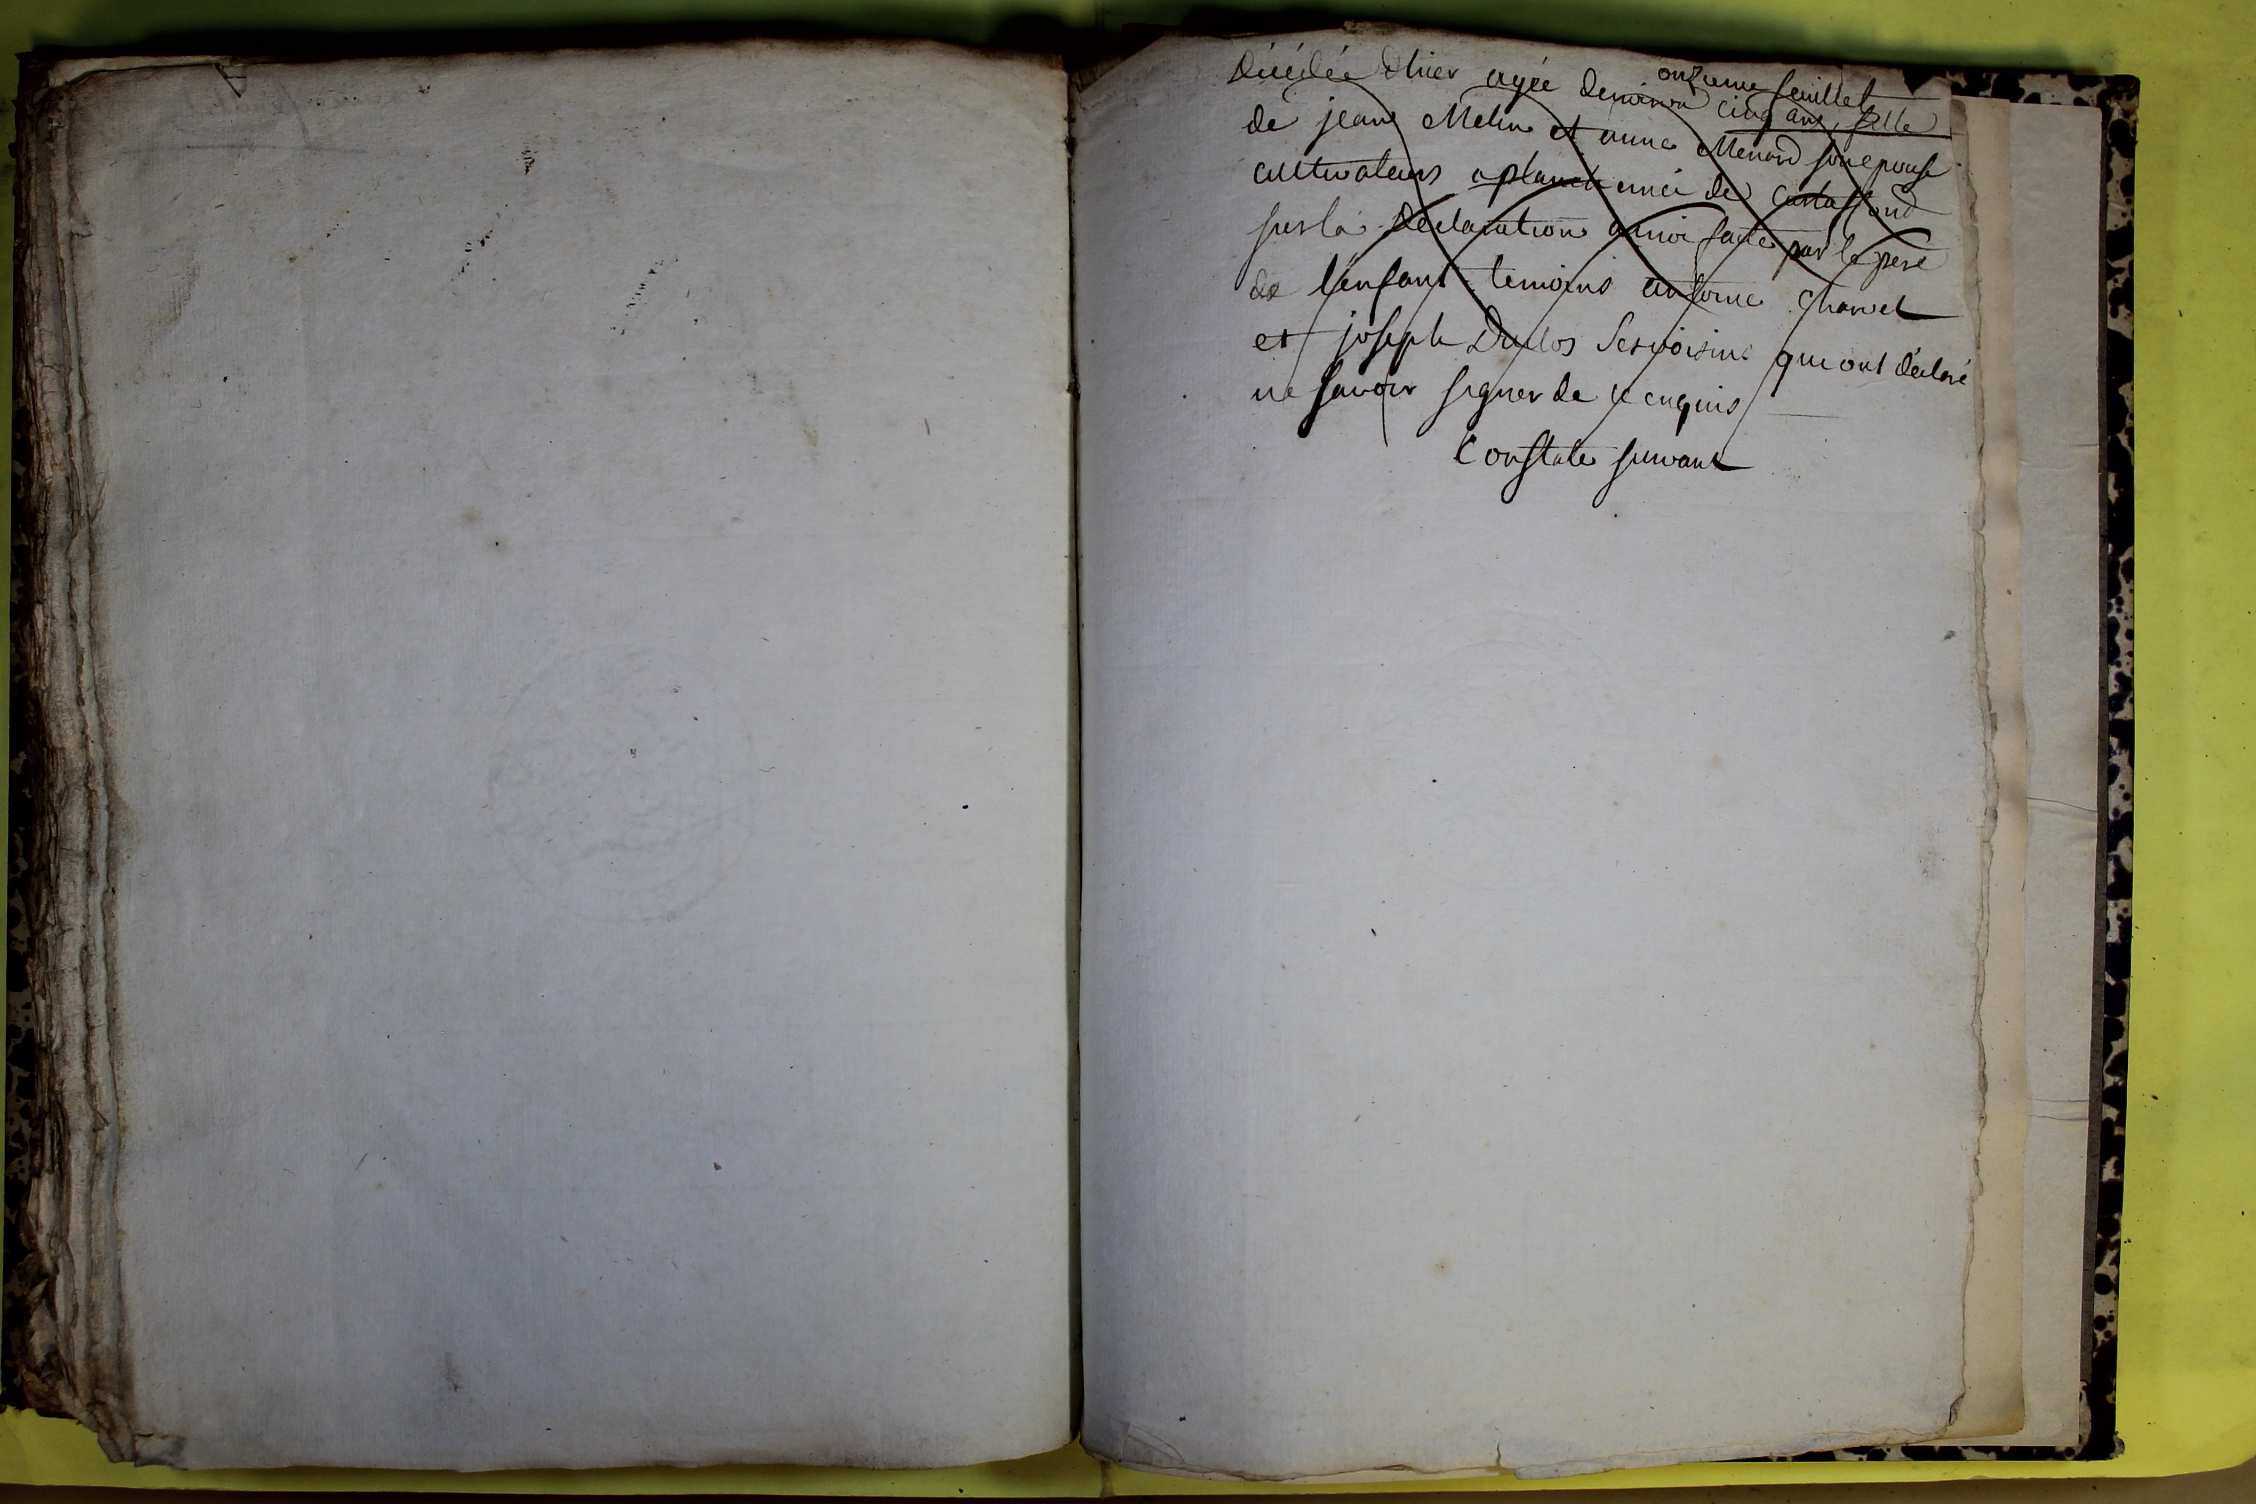 onzieme feuillet
décédée d'hier agée denviron cinq ans, fille
de jean Melin et anne Menard son epouse
cultivateurs a planch de
sur la declaration a moi faite par le pere
de l'enfant temoins antoine Charvet
et joseph Duclos ses voisins qui ont déclaré
ne savoir signer de ce enquis
Constaté suivant